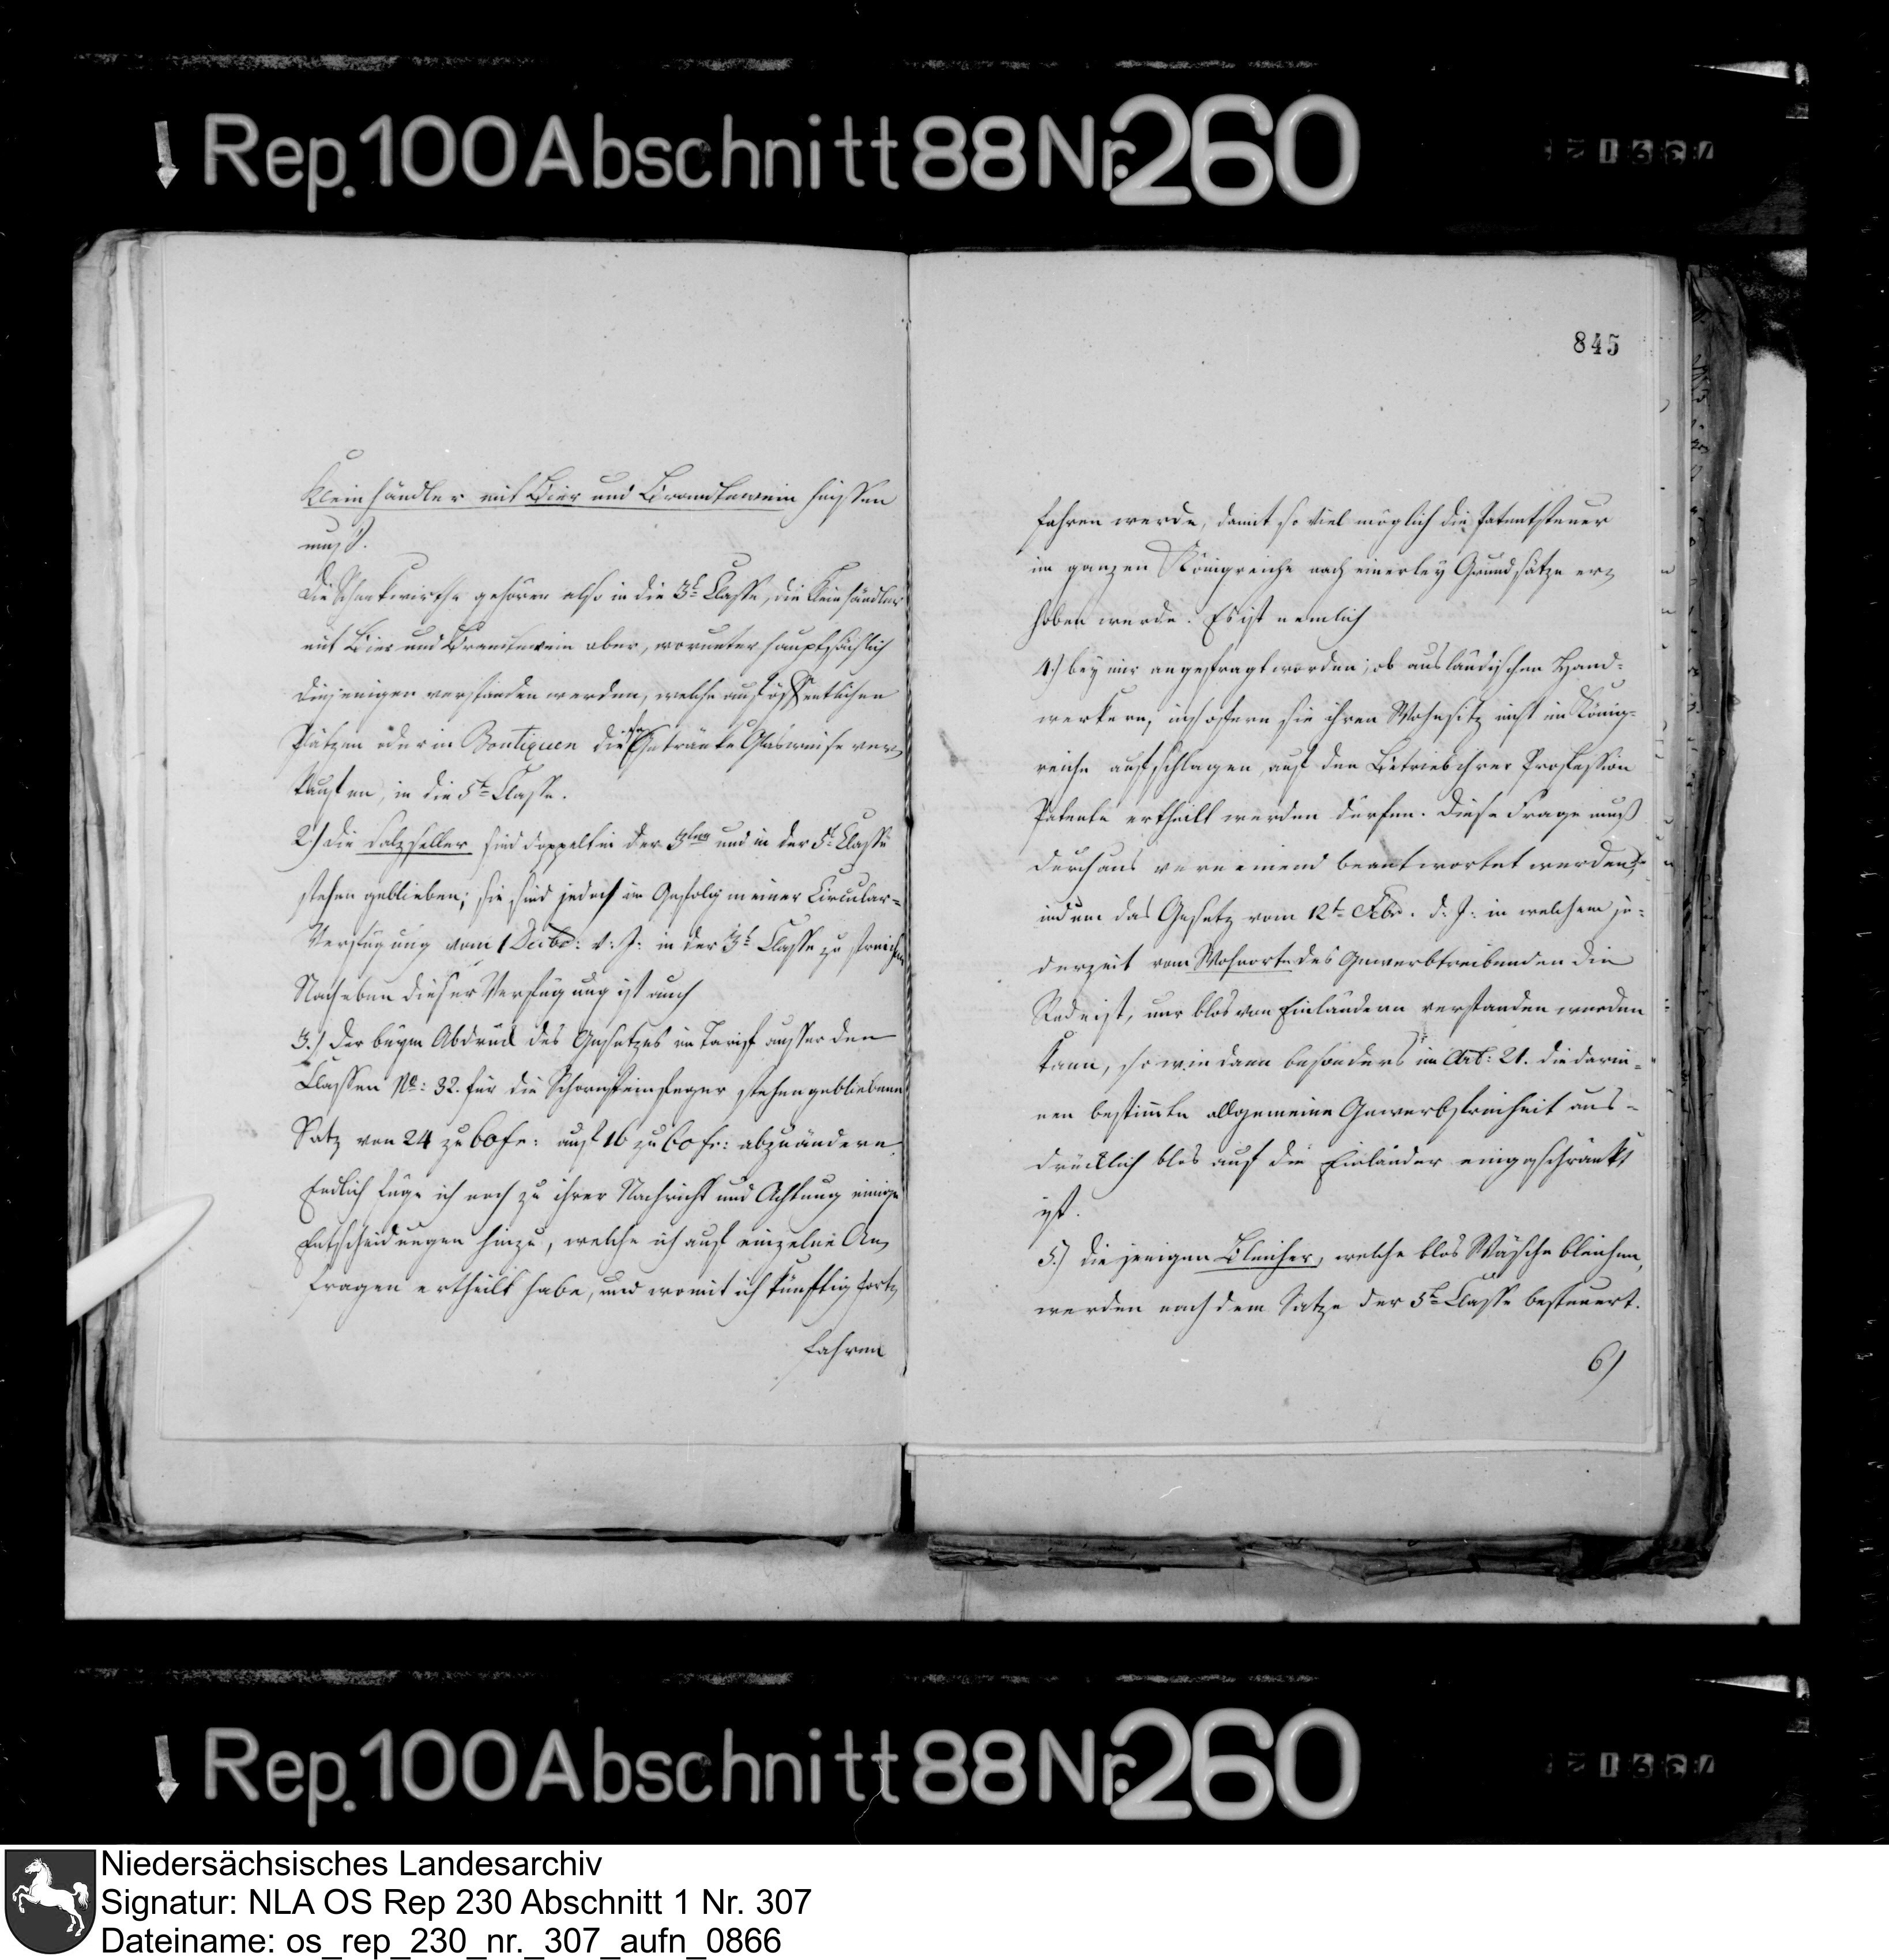 Rep. 100 Abschnitt 88 Nr. 260
845
Kleinhändler mit Bier und Brandtewein heissen
muß.
Die Schenkwirthe gehören also in die 3t Classe, die Kleinhändler
mit Bier und Brandtewein aber, worunter hauptsächlich
diejenigen verstanden werden, welche auf öffentlichen
Plätzen oder in Boutiquen die Getränke Glasweise ver-
kaufen, in die 5te Classe.
2.) Die Salzseller sind doppelt in der 3ten und in der 5t Classe
stehen geblieben; sie sind jedoch in Gefolg meiner Circular-
Verfügung vom 1 Decbr: v: J: in der 3t Classe zu streichen
Nach eben dieser Verfügung ist auch
3.) der beym Abdruck des Gesetzes im Tariff ausser den
Classen No: 32. für die Schornsteinfeger stehen gebliebene
Satz von 24 zu 60 fr: auf 16 zu 60 fr: abzuändern.
Endlich füge ich noch zu ihrer Nachricht und Achtung einige
Entscheidungen hinzu, welche ich auf einzelne An-
fragen ertheilt habe, und womit ich künftig fort-
fahren
fahren werde, damit so viel möglich die Patentsteuer
im ganzen Königreiche nach einerley Grundsätze er-
hoben werde. Es ist nemlich
4.) bey mir angefragt worden; ob ausländischen Hand-
werkern, insofern sie ihren Wohnsitz nicht im König-
reiche aufschlagen, auf den Betrieb ihrer Profession
Patente ertheilt werden dürfen. Diese Frage muß
durchaus verneinend beantwortet werden,
indem das Gesetz vom 12t Febr. d: J: in welchem je-
derzeit vom Wohnorte des Gewerbtreibenden die
Rede ist, nur blos von Einländern verstanden werden
kann, so wie dann besonders im Art: 21. die darin-
nen bestimte allgemeine Gewerbsfreiheit aus-
drücklich blos auf die Einländer eingeschränkt
ist.
5.) diejenigen Bleicher, welche blos Wäsche bleichen,
werden nach dem Satze der 5t Classe besteuert.
6)
Rep. 100 Abschnitt 88 Nr. 260
Niedersächsisches Landesarchiv
Signatur: NLA OS Rep 230 Abschnitt 1 Nr. 307
Dateiname: os_rep_230_nr._307_aufn_0866